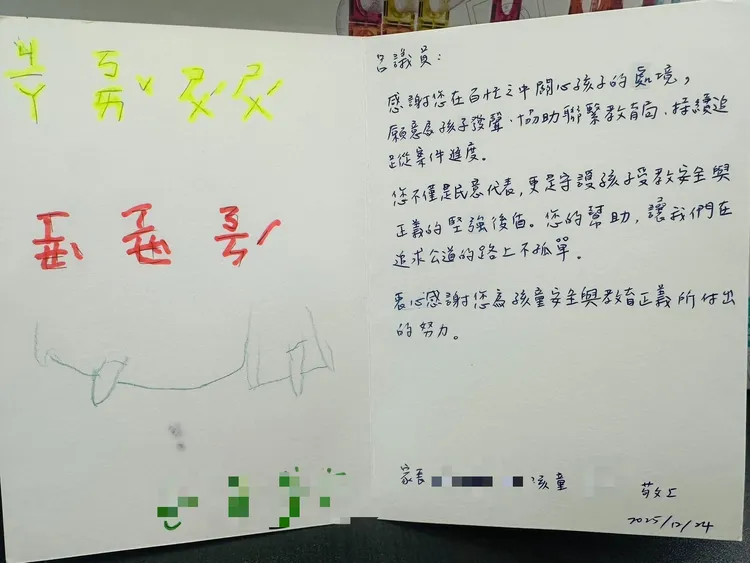 ㄐㄧㄚ ㄎㄞˇ ㄕㄨˊ ㄕㄨˊ
ㄒㄧㄝˋ ㄒㄧㄝˋ ㄋㄧㄣˊ
呂議員：
感謝您在百忙之中關心孩子的處境，
願意為孩子發聲、協助聯繫教育局、持續追
蹤案件進度。
您不僅是民意代表，更是守護孩子受教安全與
正義的堅強後盾。您的幫助，讓我們在
追求公道的路上不孤單。
衷心感謝您為孩童安全與教育正義所付出
的努力。
家長 孩童 敬上
2025/12/24